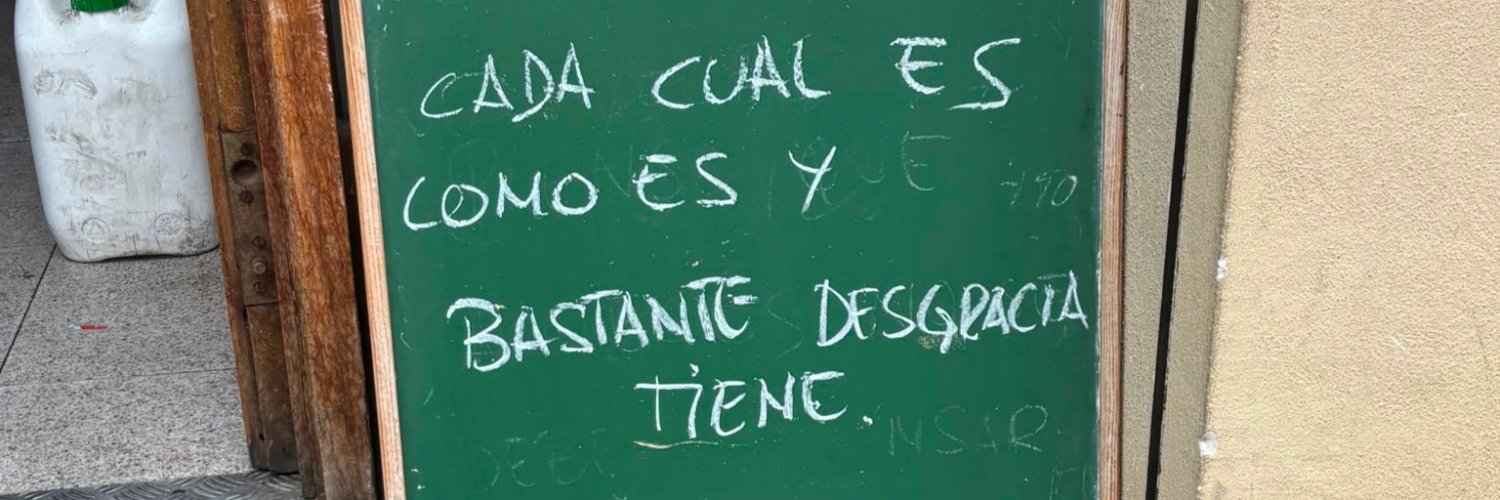 CADA CUAL ES
COMO ES Y
BASTANTE DESGRACIA
TIENE.